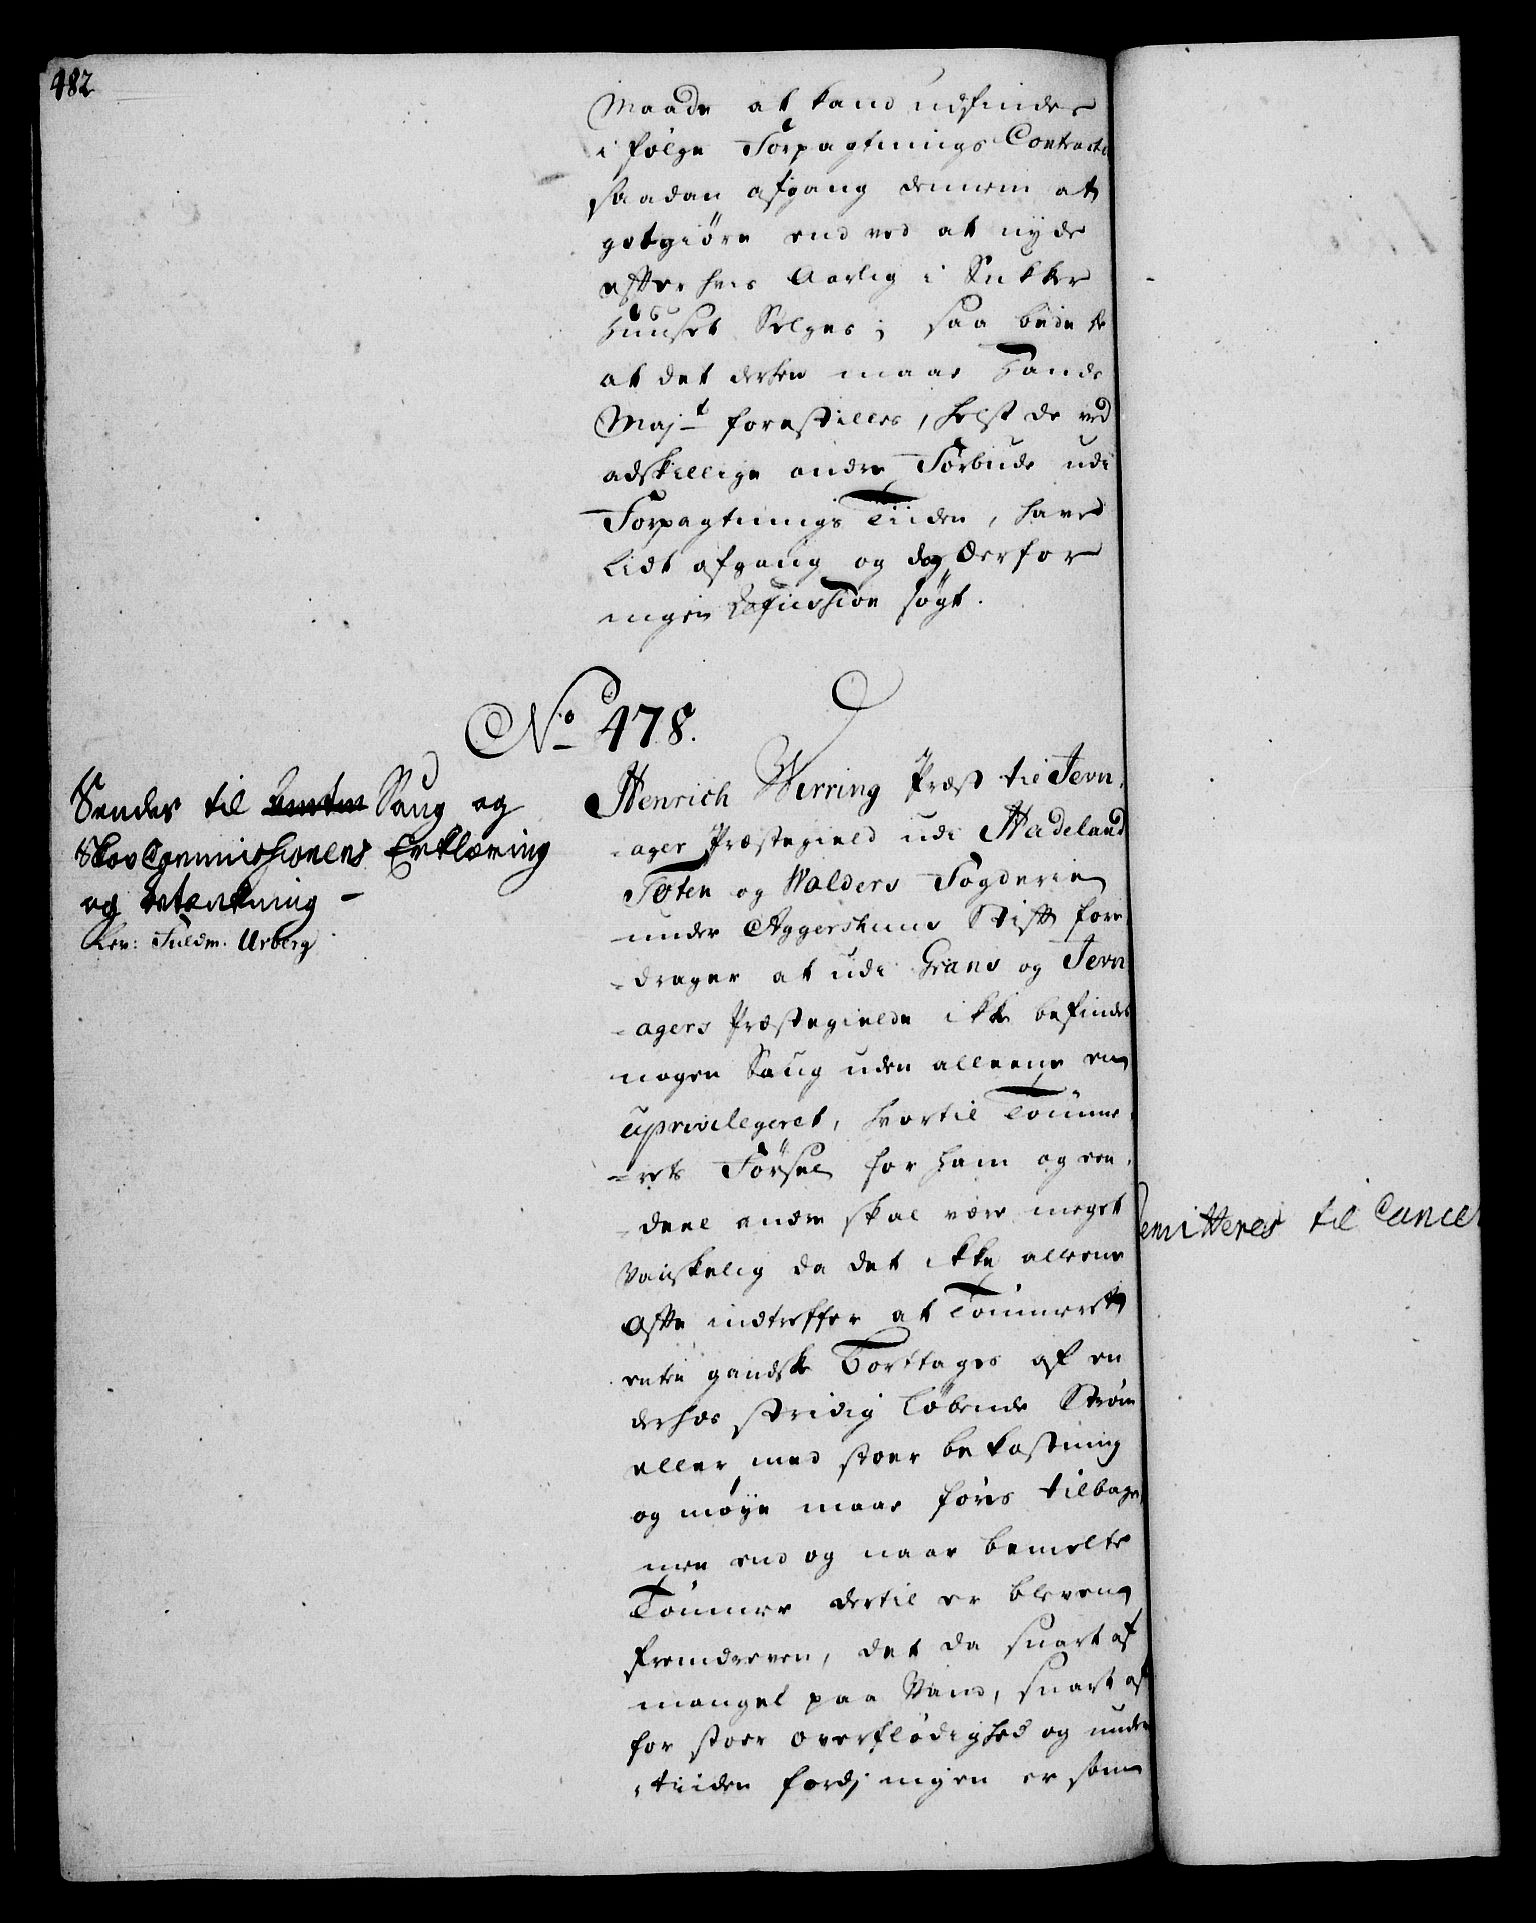 482
Maade at kand udfindes
i følge Forpagtnings Contracte
saadan afgang dennem at
gotgiøre end ved at nyde
effter hvis Aarlig i Sukker
Huuset Selges; saa bede de
at det derhen maae Hands
Maj.t forestilles, helst de ved
adskillige andre Forbude udi
Forpagtnings Tiiden, haver
Lidt afgang og dog derfor
ingen søgt.
No 478.
Sendes til Saug og
Skov Commissionens Erklæring
og betænkning -
Lev: Fuldm. Urberg.
Henrich Werring Præst til Jevn-
-ager Præstegield udi Hadeland
Toten og Walders Fogderie
under Aggershuus Stifft fore-
-drager at udi Grans og Jevn
-agers Præstegielde ikke befindes
nogen Saug uden alleene en
uprivilegeret, hvortil Tømme-
-rets Førsel for ham og een-
-deel andre skal være meget
Vanskelig da det ikke alleene
Offte indtreffer at Tømmeret
enten gandske borttages af en
derhos stridig løbende Strøm
eller med stoer bekostning
og møye maae føres tilbage,
men end og naar bemelte
Tømmer dertil er bleven
fremdreven, det da snart af
mangel paa Vand, snart af
for stoer overflødighed og unde
-tiiden fordj ingen er som
emitteres til Cancel